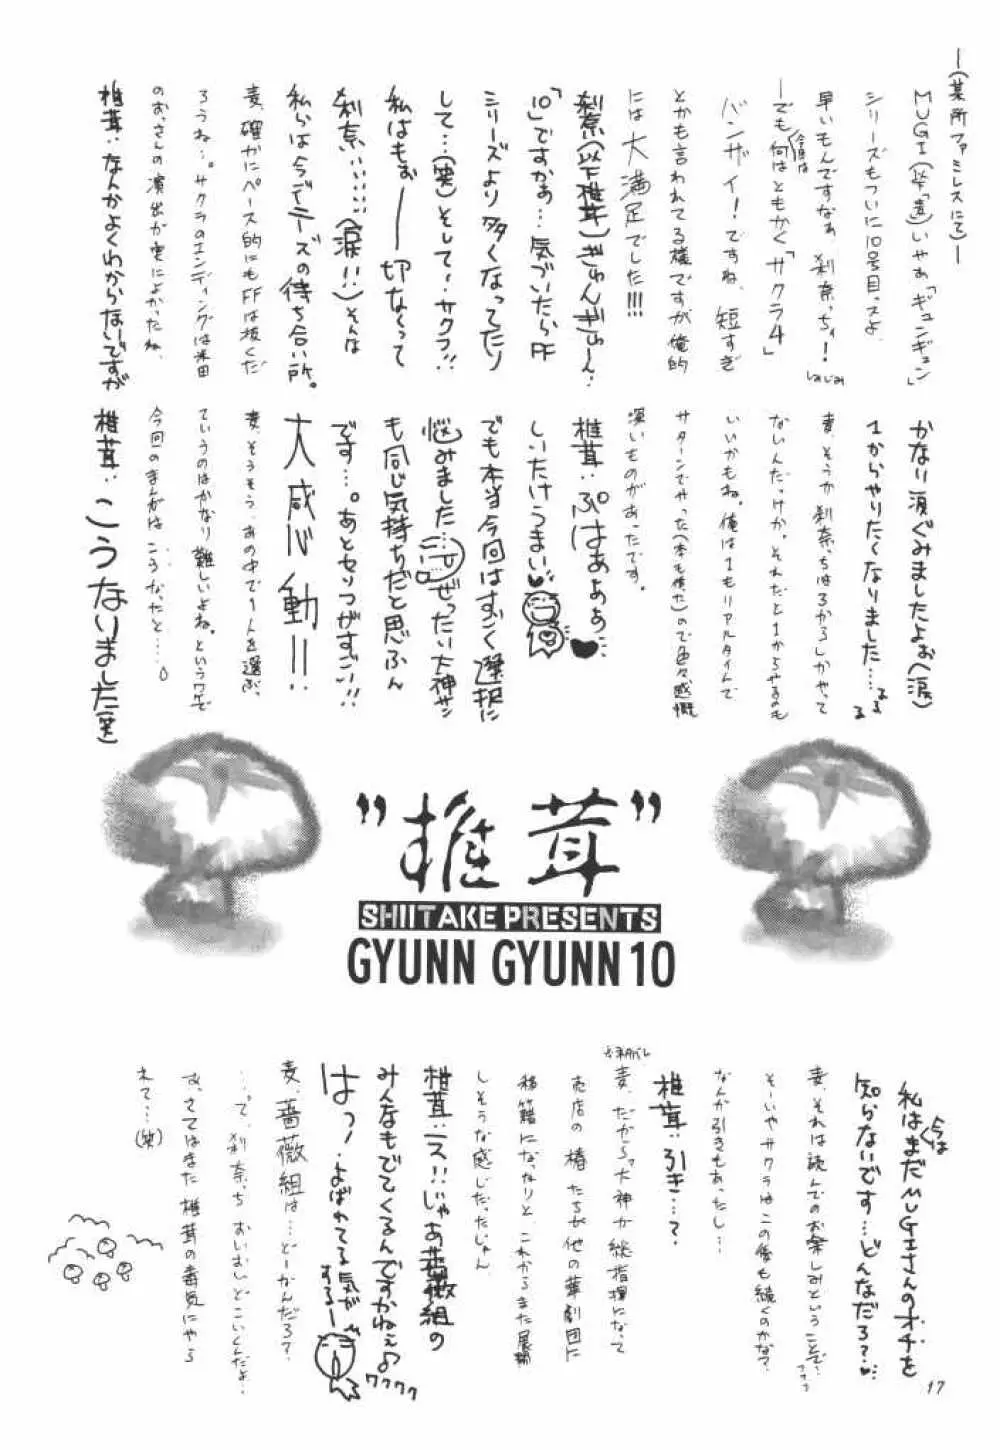 —(某所ファミレスにて)—
MUGI(以下「麦」)いやぁ「ギュンギュン」
シリーズもついに10号目っスよ、
早いもんですなぁ、刹奈っち!
しみじみ
—でも今回は何はともかく「サクラ4」
バンザイ!ですね、短すぎ
とかも言われてる様ですが俺的
には大満足でした!!!
刹奈(以下椎茸)ぎゅんぎゅ〜ん…
「10」ですかぁ…気づいたらFF
シリーズより多くなってたり
して…(笑)そして、サクラ!!
私はもぉ——切なくって
刹奈いぃ……(涙!!)そんな
私らは今デニーズの待ち合い所。
麦、確かにペース的にもFFは抜くだ
ろうね…。サクラのエンディングは米田
のおっさんの演出が実によかったね、
椎茸:なんかよくわからないですが
かなり涙ぐみましたよぉ(涙)
1からやりたくなりました…。
麦、そうか刹奈っちは3からしかやって
ないんだっけか。それだと1からやるのも
いいかもね。俺は1もリアルタイムで
サターンでやった(本も作った)ので色々感慨
深いものがあったです。
椎茸:ぷはぁぁぁ
しいたけうまい♥
でも本当今回はすごく選択に
悩みました…ぜったい大神サン
も同じ気持ちだと思ふん
です…。あとセリフがすごい!!
大感心動!!
麦、そうそう、あの中で1人を選ぶ、
ていうのはかなり難しいよね。というワケで
今回のまんがはこうなったと…。
椎茸:こうなりました(笑)
"椎茸"
SHIITAKE PRESENTS
GYUNN GYUNN 10
私は今はまだMUGIさんのオチを
知らないです…どんなだろ?♥
麦、それは読んでのお楽しみということで…フフフ
そーいやサクラはこの後も続くのかな?
なんか引きもあったし…
椎茸:引き…?
麦、だからっ大神が総指揮になって
売店の椿たちが他の華劇団に
移籍になったりと、これからまた展開
しそうな感じだったじゃん
椎茸:ス!!じゃあ薔薇組の
みんなもでてくるんですかねぇ♪
ワクワク
はっ!よばれてる気がするー
麦、薔薇組は…どーかんだろ?
…って、刹奈っち おいおいどこいくんだよ…
さ、さてはまた 椎茸の毒気にやら
れて…(笑)
17